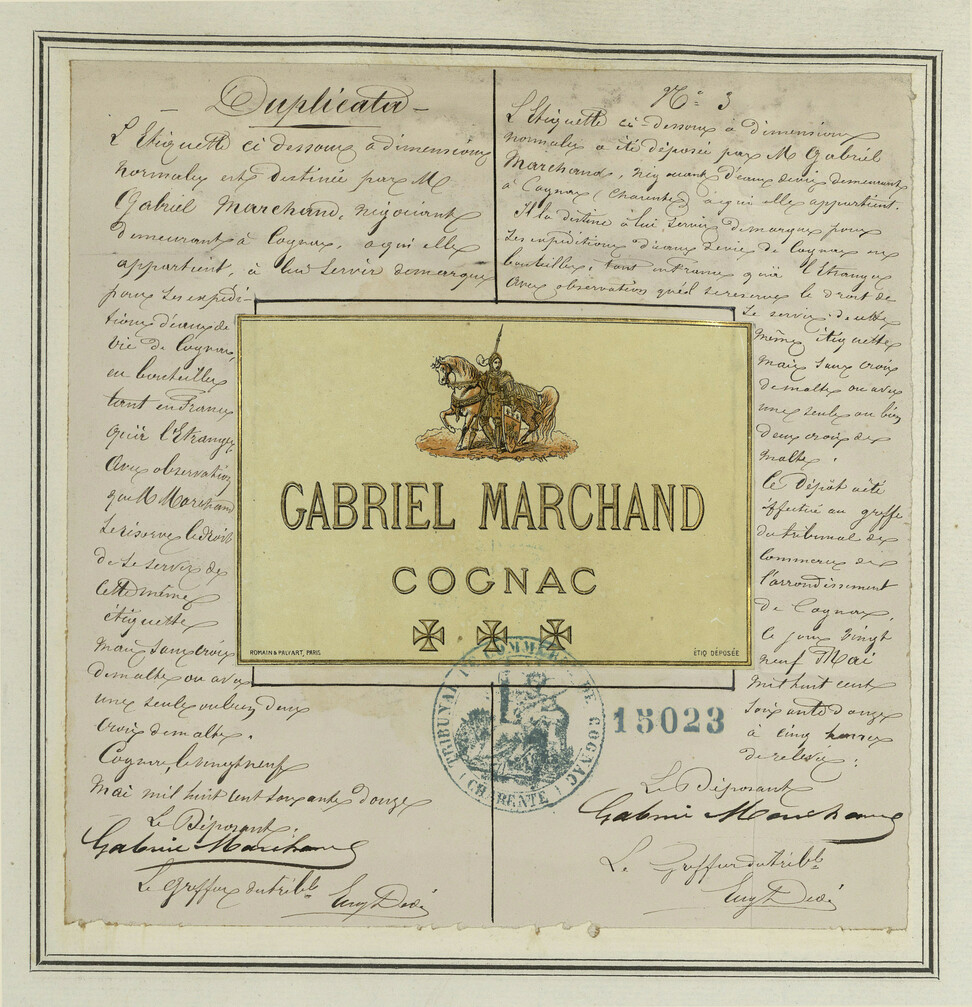 Duplicata
L'Etiquette ci dessous à dimensions
normales est destinée par Mr
Gabriel Marchand, négociant
demeurant à Cognac, à qui elle
appartient, à lui servir de marque
pour ses expédi-
tions d'eaux de
vie de Cognac,
en bouteilles
tant en France
qu'à l'Etranger
Avec observation
que M Marchand
se réserve le droit
de se servir de
cette même
étiquette
mais sans croix
de malte ou avec
une seule ou bien deux
croix de malte.
Cognac, le vingt neuf
Mai mil huit cent soixante douze
Le Déposant,
Gabriel Marchand
Le Greffier du tribl
Eug Dedé
No 3
L'Etiquette ci-dessous à dimensions
normales a été déposée par M Gabriel
Marchand, négociant d'eaux de vie demeurant
à Cognac (Charente) à qui elle appartient.
Il la destine à lui servir de marque pour
ses expéditions d'eaux de vie de Cognac en
bouteilles, tant en France qu'à l'Etranger
Avec observation qu'il se réserve le droit de
se servir de cette
même étiquette
mais sans croix
de malte ou avec
une seule ou bien
deux croix de
malte.
Le Dépôt a été
effectué au greffe
du tribunal de
Commerce de
l'arrondissement
de Cognac,
le jour vingt
neuf Mai
mil huit cent
soixante douze
à cinq heures
de relevée.
Le Déposant
Gabriel Marchand
Le Greffier du tribl
Eug Dedé
GABRIEL MARCHAND
COGNAC
ROMAIN & PALYART, PARIS
ÉTIQ DÉPOSÉE
TRIBUNAL DE COMMERCE DE COGNAC
(CHARENTE)
15023